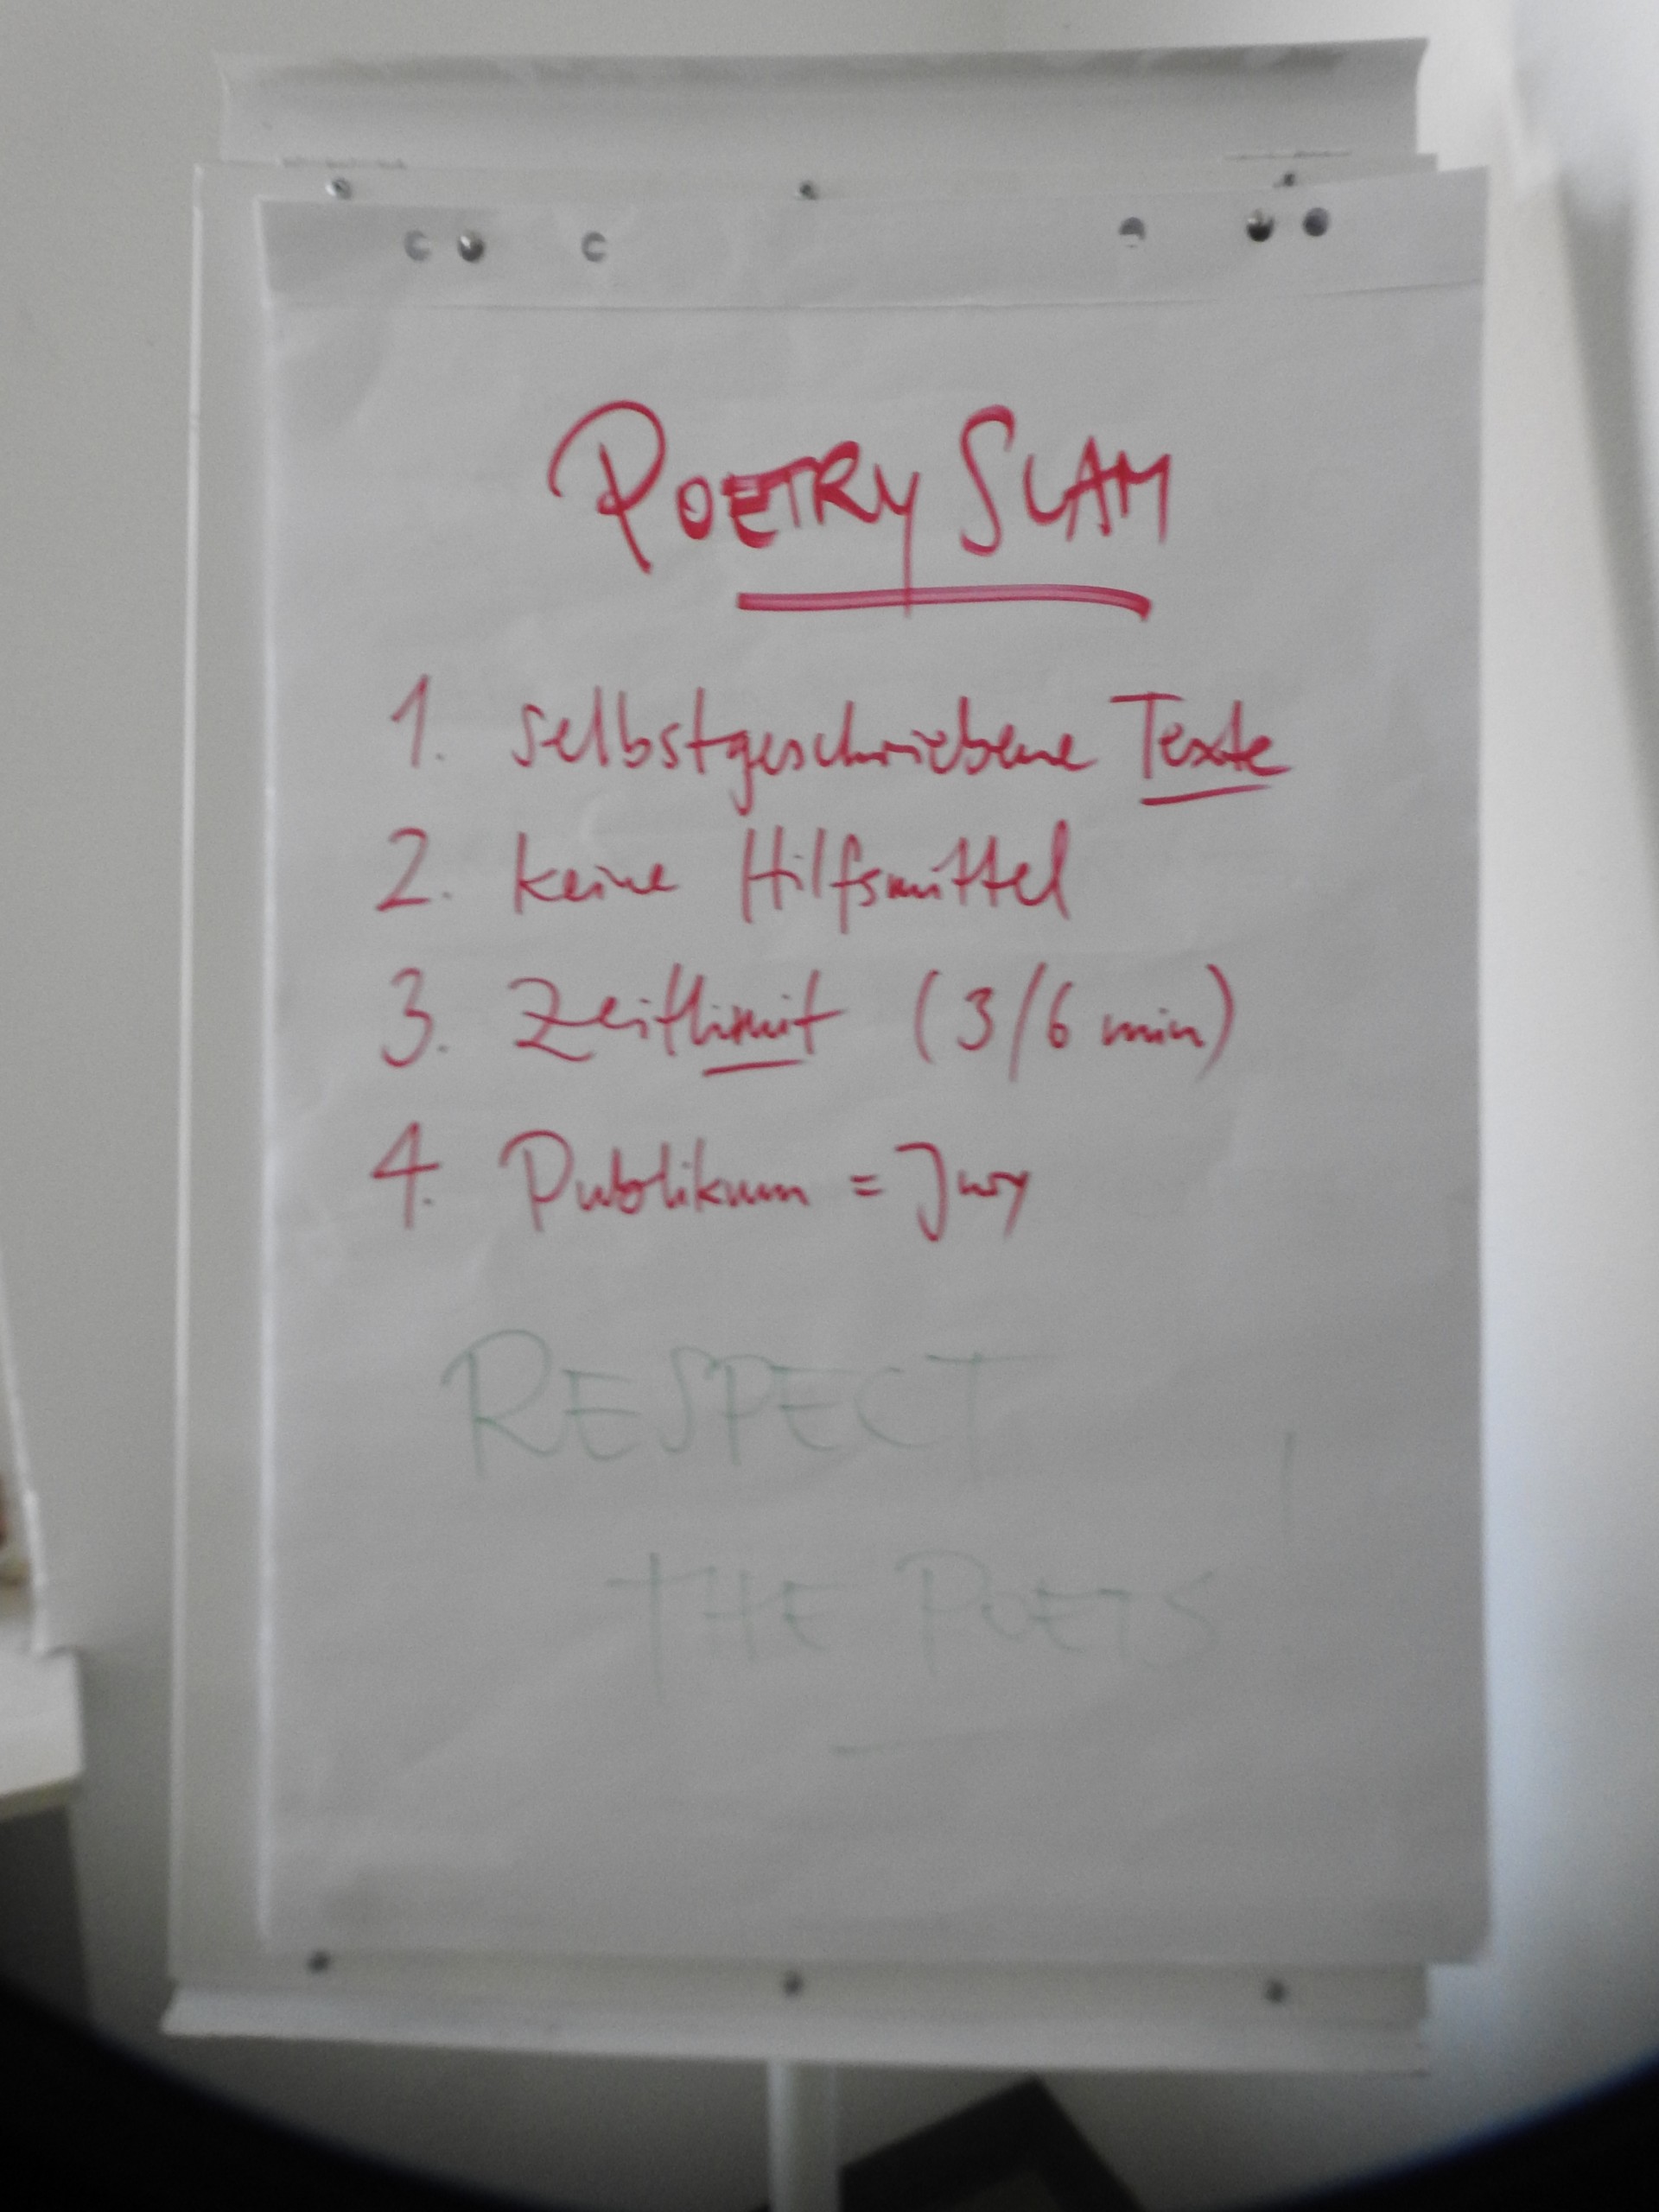 POETRY SLAM
1. selbstgeschriebene Texte
2. keine Hilfsmittel
3. Zeitlimit (3/6 min)
4. Publikum = Jury
RESPECT
THE POETS!